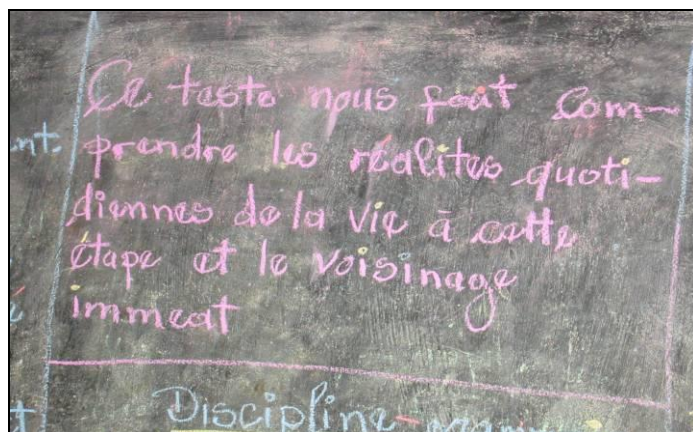 Ce texte nous fait com-
nt. prendre les réalites quoti-
diennes de la vie à cette
étape et le voisinage
immeat
Discipline-